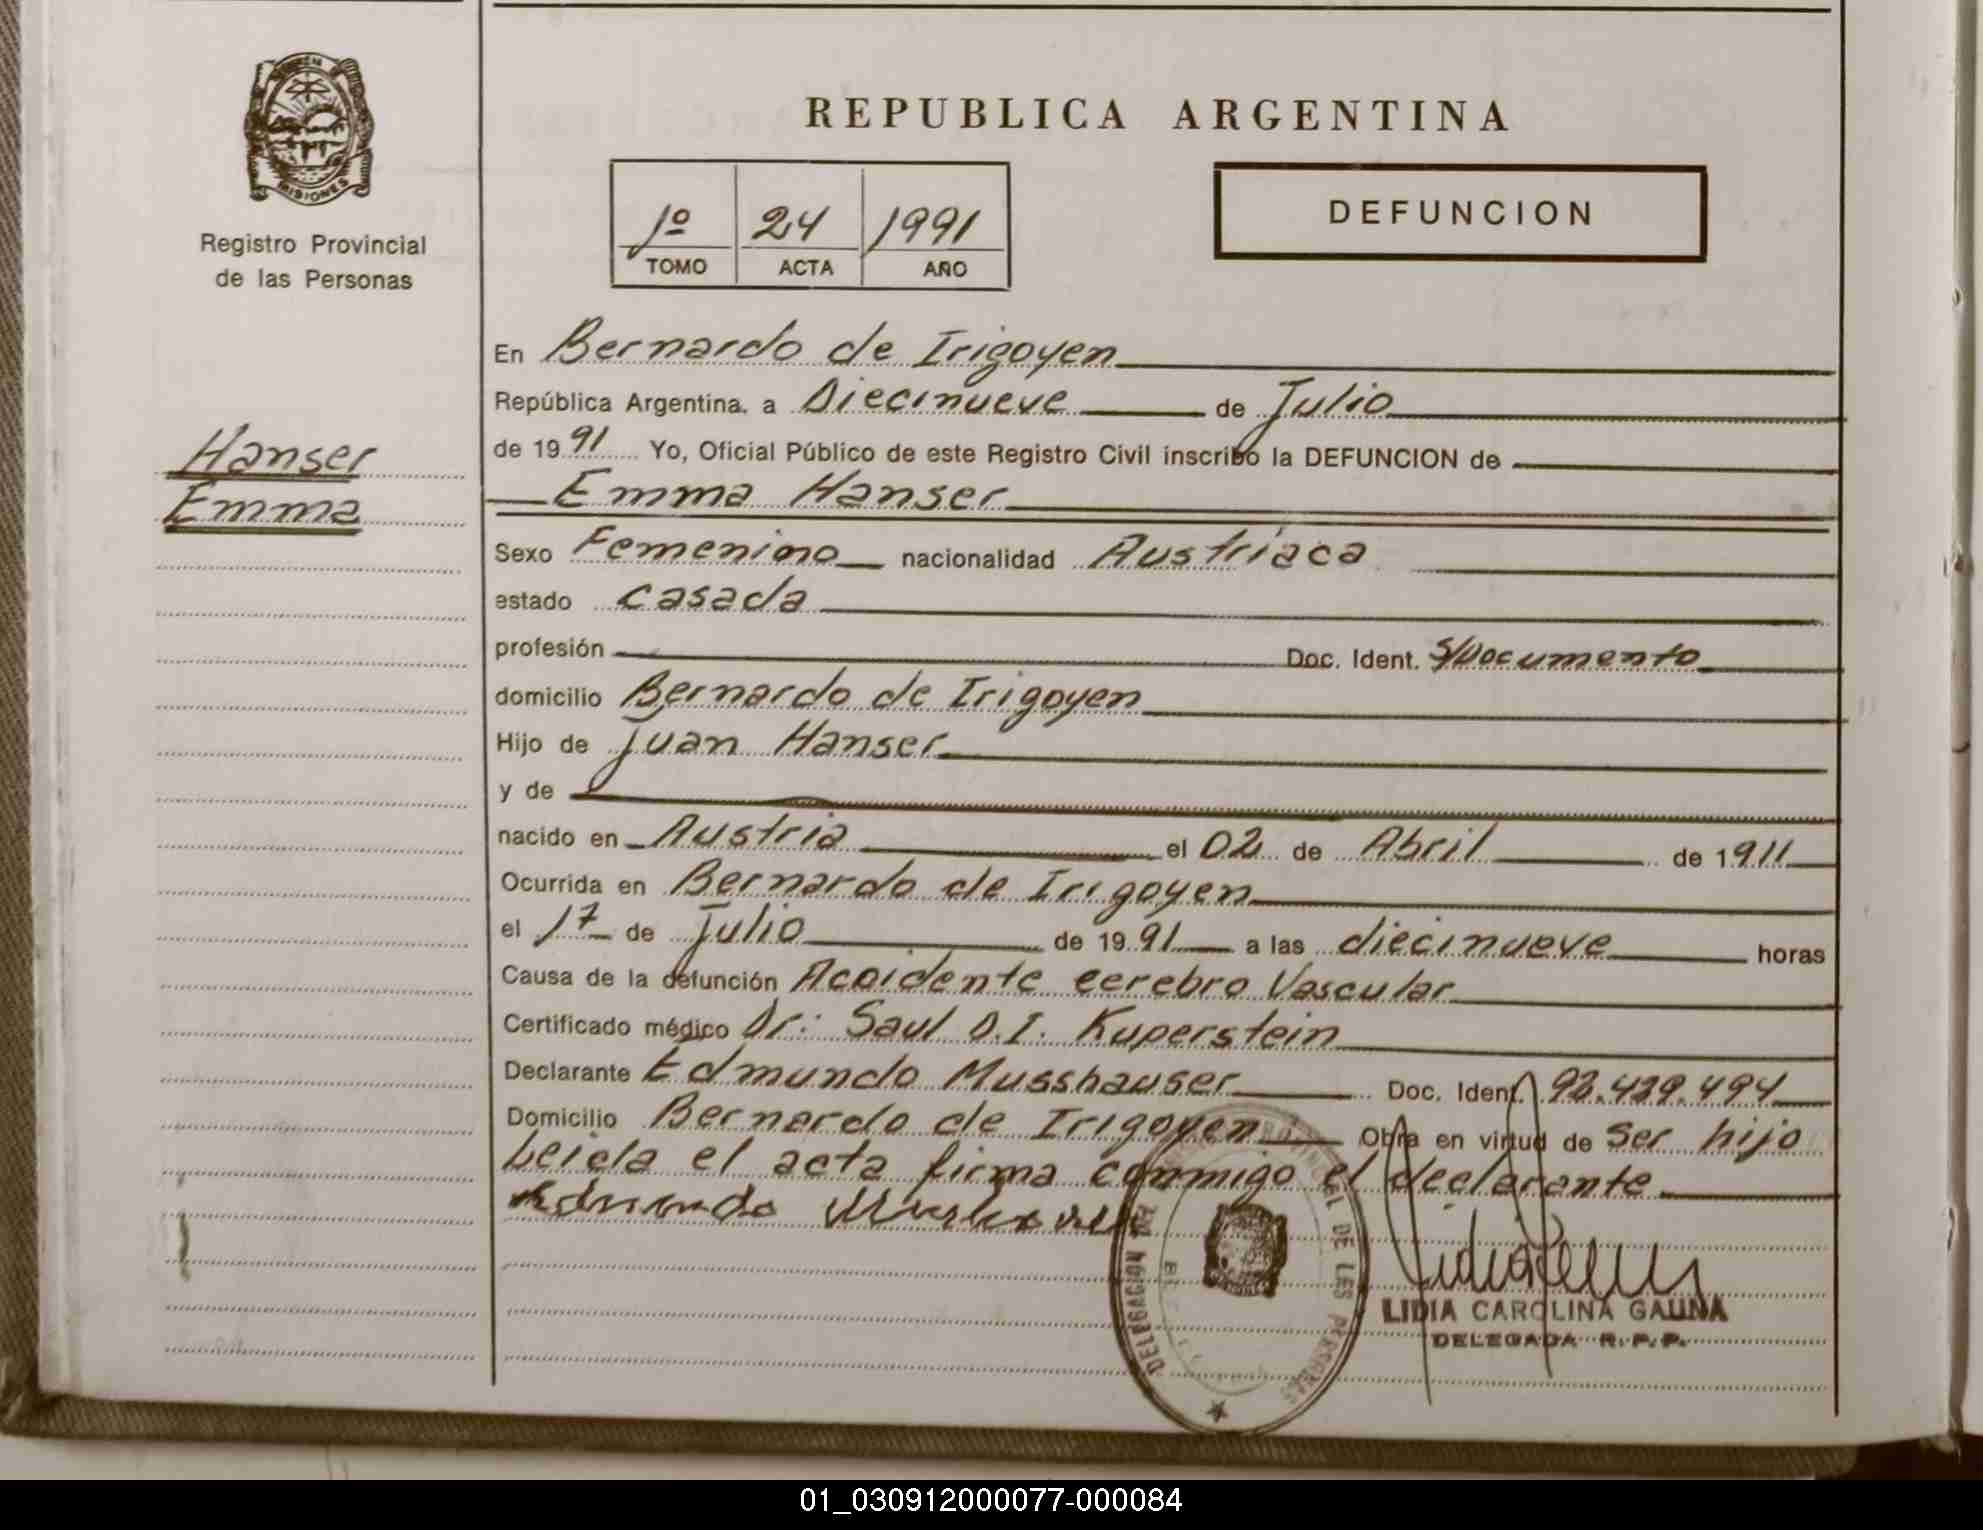 MISIONES
Registro Provincial
de las Personas
Hanser
Emma
REPUBLICA ARGENTINA
1º 24 1991
TOMO ACTA AÑO
DEFUNCION
En Bernardo de Irigoyen
República Argentina, a Diecinueve de Julio
de 1991 Yo, Oficial Público de este Registro Civil inscribo la DEFUNCION de
Emma Hanser
Sexo Femenino nacionalidad Austríaca
estado casada
profesión Doc. Ident. S/Documento
domicilio Bernardo de Irigoyen
Hijo de Juan Hanser
y de
nacido en Austria el 02 de Abril de 1911
Ocurrida en Bernardo de Irigoyen
el 17 de Julio de 1991 a las diecinueve horas
Causa de la defunción Accidente cerebro Vascular
Certificado médico Dr: Saul D.I. Kuperstein
Declarante Edmundo Musshauser Doc. Ident. 92.429.494
Domicilio Bernardo de Irigoyen Obra en virtud de ser hijo
Leida el acta firma conmigo el declarante
DE LES PERSONAS
DELEGACION
LIDIA CAROLINA GAUNA
DELEGADA R.P.P.
01_030912000077-000084